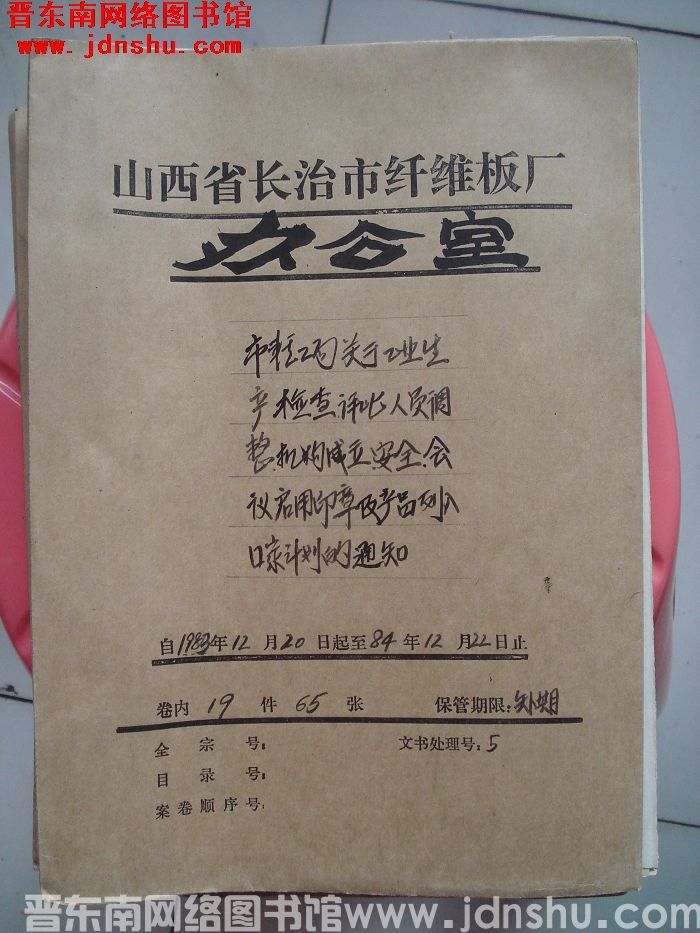 晋东南网络图书馆
www.jdnshu.com
山西省长治市纤维板厂
办公室
市轻工局关于工业生
产检查评比人员调
整机构成立安全会
议启用印章及产品列入
口家计划的通知
自1983年12月20日起至84年12月22日止
卷内19件65张 保管期限:短期
全宗号: 文书处理号:5
目录号:
案卷顺序号:
晋东南网络图书馆www.jdnshu.com